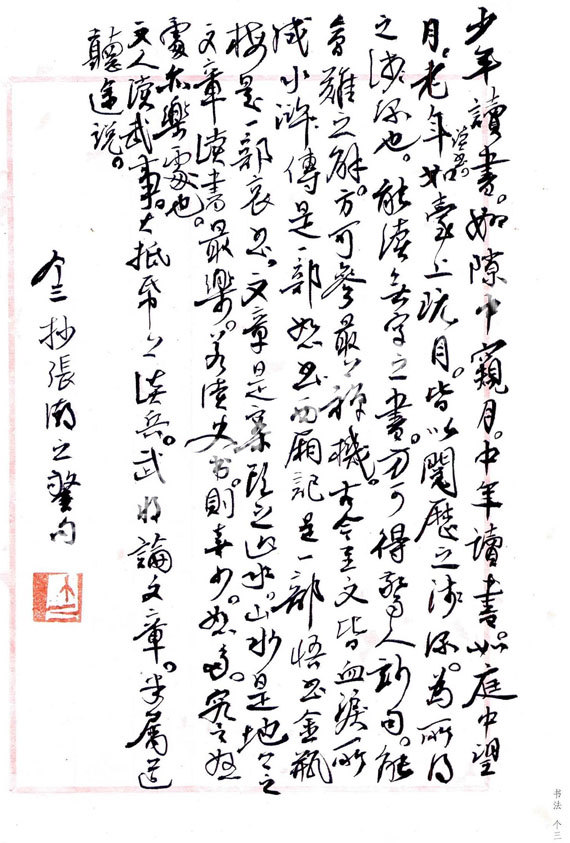 少年讀書。如隙中窺月。中年讀書。如庭中望
月。老年讀書如臺上玩月。皆以閱歷之淺深。為所得
之淺深也。能讀無字之書。方可得驚人妙句。能
會難之解。方可參最上禪機。古今至文皆血淚所
成水滸傳是一部怒书西厢記是一部悟书金瓶
梅是一部哀书。文章是案頭之山水。山水是地上之
文章讀書最樂。若读史书。則喜少。怒多。究之怒
處亦樂處也。
文人读武事。大抵紙上談兵。武將論文章。半屬道
聽途說。
个三抄張潮之警句
书法 个三